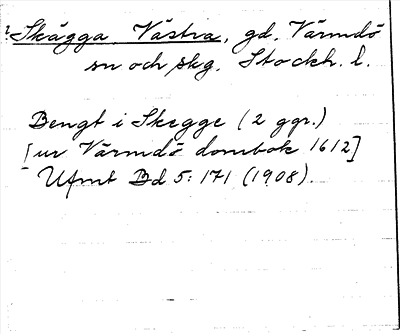 Skägga Västra, gd. Värmdö
sn och skg. Stockh. l.
Bengt i Skegge (2 ggr.)
[ur Värmdö dombok 1612]
Ufmt Bd 5: 171 (1908).